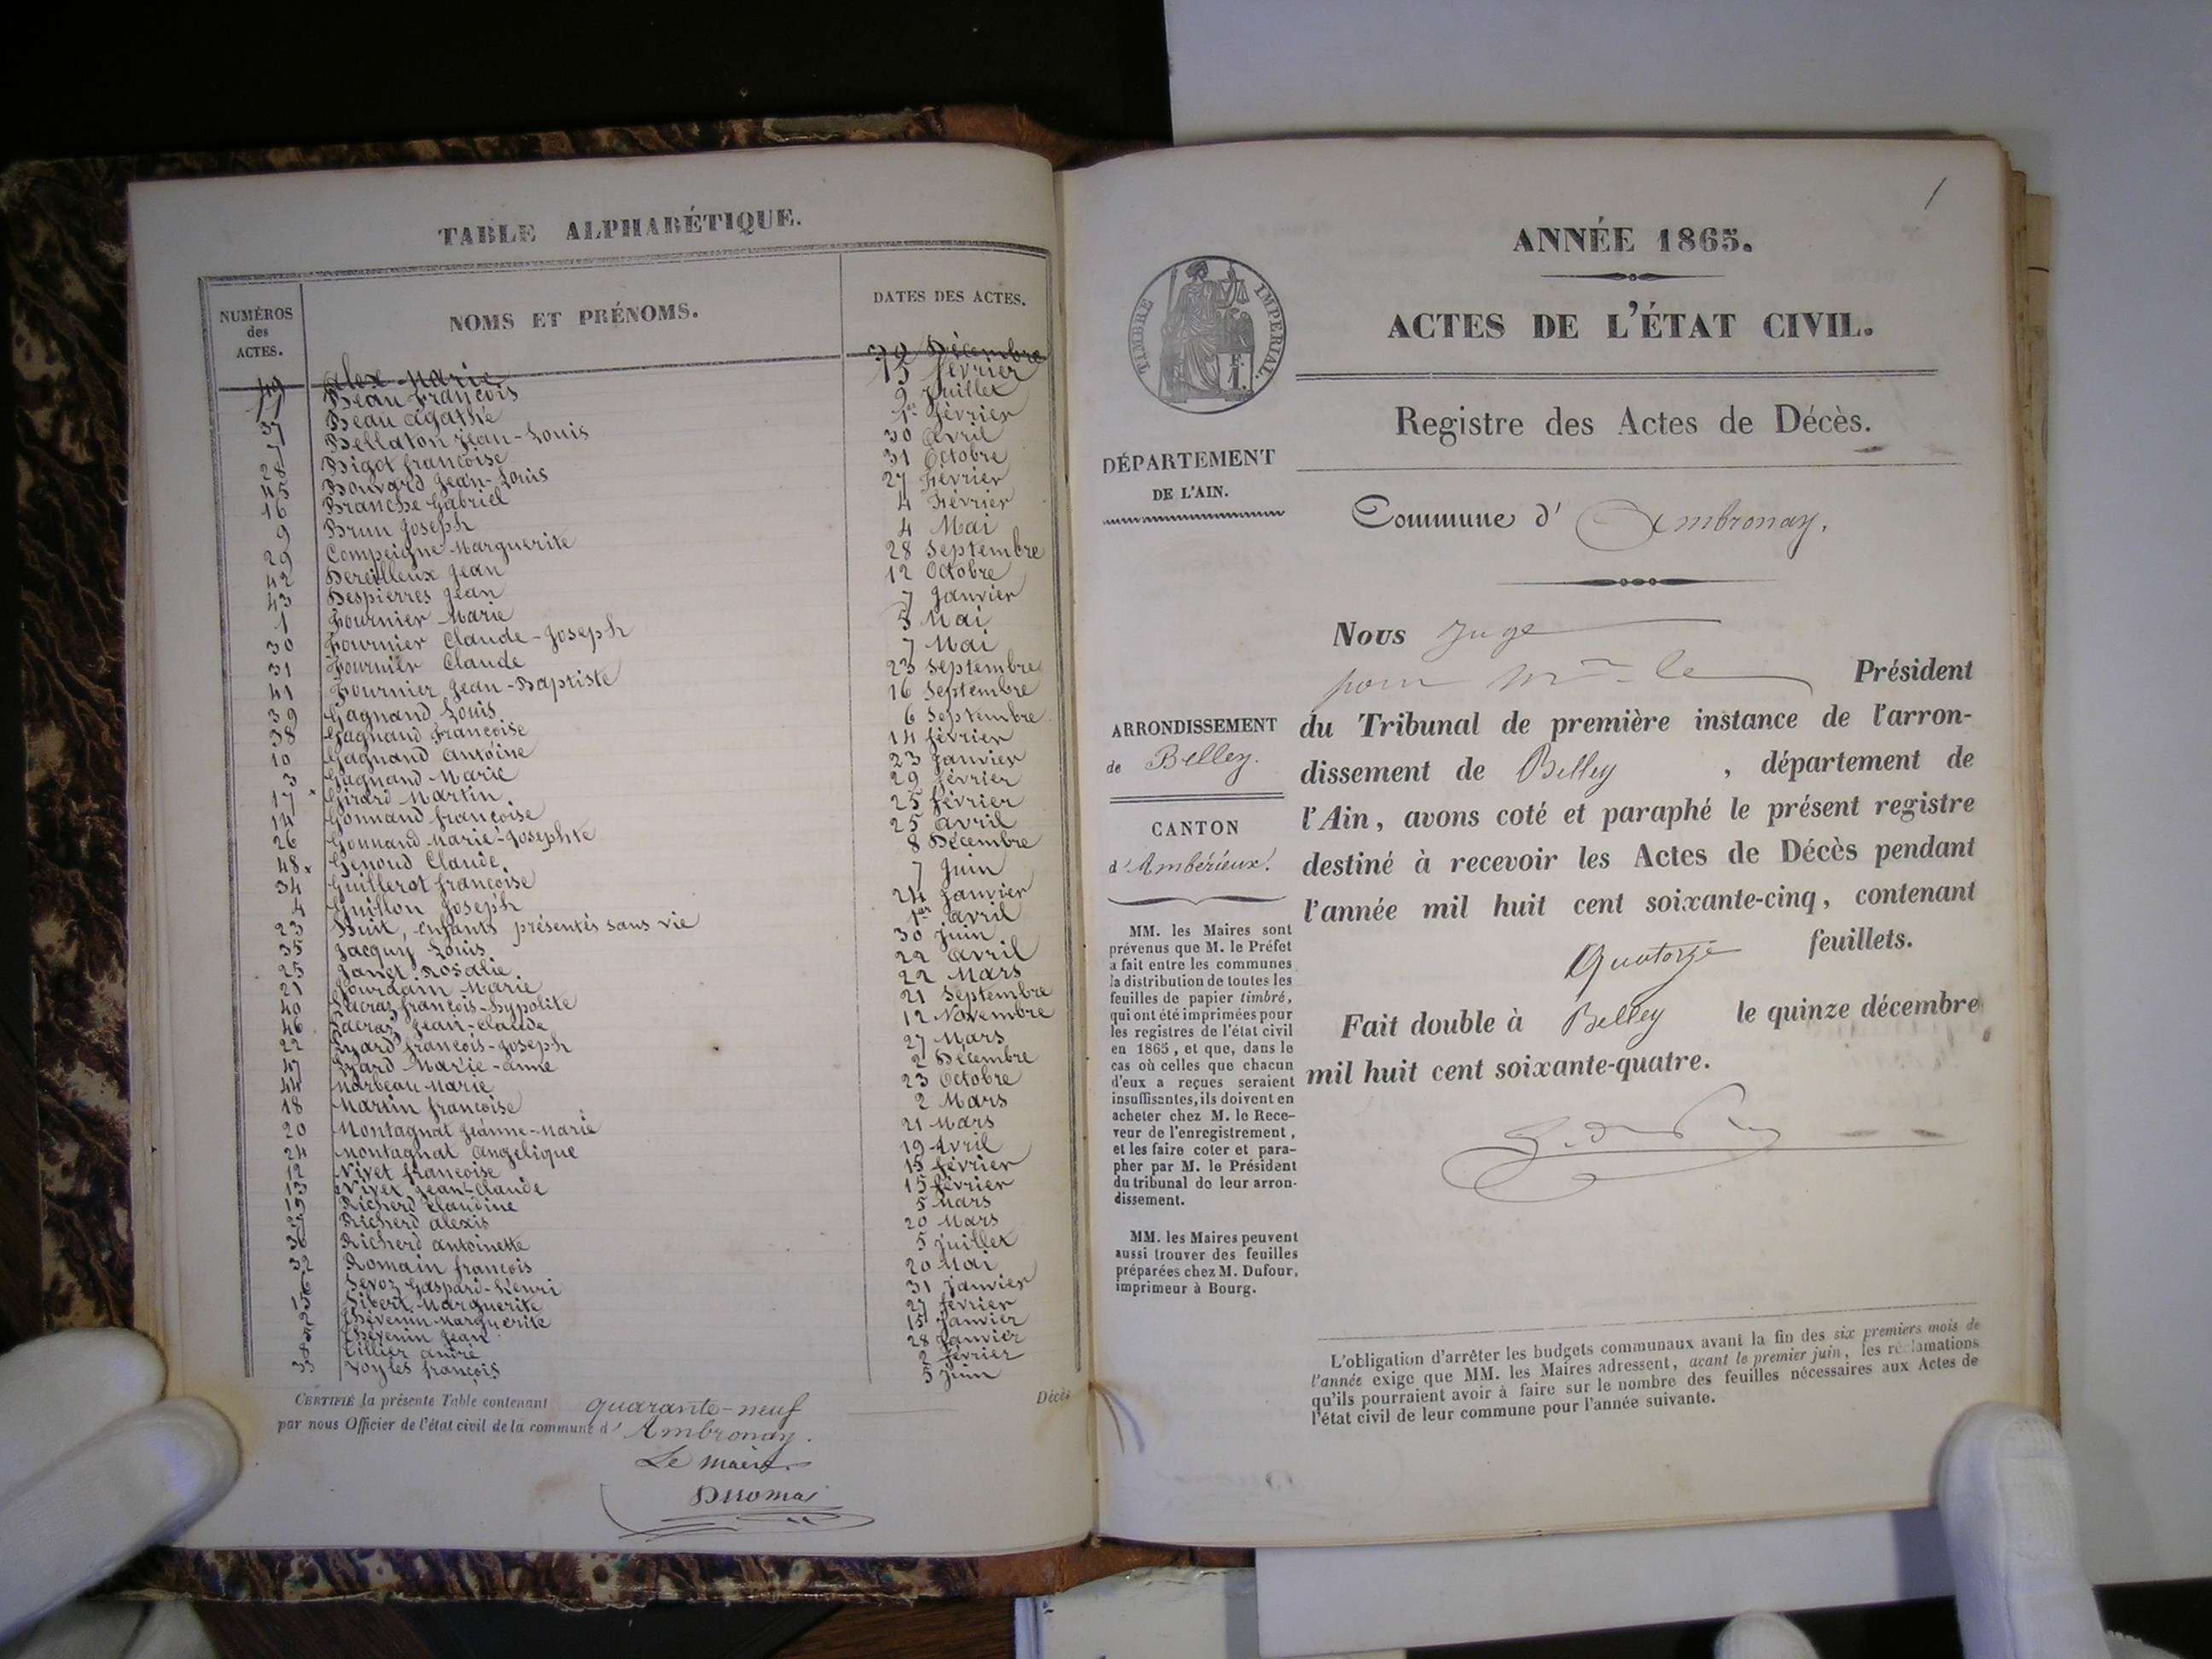 TABLE ALPHABÉTIQUE.
NUMÉROS des ACTES. NOMS ET PRÉNOMS. DATES DES ACTES.
49 Alex Marie 30 Décembre
11 Beau François 15 février
37 Beau Agathe 9 Juillet
7 Bellaton Jean-Louis 1er février
28 Bigot françoise 30 Avril
45 Bouvard Jean-Louis 31 Octobre
16 Branche Gabriel 27 Février
9 Brun Joseph 4 Février
29 Compeigne Marguerite 4 Mai
42 Dereilleux Jean 28 Septembre
43 Despierres Jean 12 Octobre
1 Fournier Marie 7 Janvier
30 Fournier Claude-Joseph 5 Mai
31 Fournier Claude 7 Mai
41 Fournier Jean-Baptiste 23 Septembre
39 Gagnand Louis 16 Septembre
38 Gagnand Françoise 6 Septembre
10 Gagnand Antoine 14 février
3 Gagnand Marie 23 Janvier
17 Girard Martin 29 février
14 Gonnand françoise 25 février
26 Gonnand Marie-Josephte 25 Avril
48 Genoud Claude 8 Décembre
34 Guillerot françoise 7 Juin
4 Guillon Joseph 24 Janvier
23 Huit, enfants présentés sans vie 1er Avril
35 Jacquy Louis 30 Juin
25 Janet Rosalie 22 Avril
21 Jourdain Marie 22 Mars
40 Lacraz françois-hypolite 21 Septembre
46 Lacraz Jean-Claude 12 Novembre
22 Lyard françois-Joseph 27 Mars
47 Lyard Marie-Anne 2 Décembre
44 Marbeau Marie 23 Octobre
18 Martin françoise 2 Mars
20 Montagnat Jeanne-Marie 21 Mars
24 Montagnat Angélique 19 Avril
12 Nivet françoise 15 février
13 Nivet Jean-Claude 15 février
19 Richerd Claudine 5 Mars
27 Richerd Alexis 20 Mars
36 Richerd Antoinette 5 Juillet
32 Romain françois 20 Mai
6 Sevoz Gaspard-Henri 31 Janvier
15 Sibert Marguerite 27 février
2 Thévenin Marguerite 15 Janvier
5 Thévenin Jean 28 Janvier
8 Tillier André 2 février
33 Voyles françois 5 Juin
CERTIFIÉ la présente Table contenant quarante-neuf Décès
par nous Officier de l'état civil de la commune d'Ambronay.
Le maire
1
ANNÉE 1865.
ACTES DE L'ÉTAT CIVIL.
TIMBRE IMPERIAL.
F. 1.
Registre des Actes de Décès.
DÉPARTEMENT
DE L'AIN.
Commune d'Ambronay.
Nous Juge
pour Mr le Président
ARRONDISSEMENT
de Belley.
du Tribunal de première instance de l'arron-
dissement de Belley, département de
l'Ain, avons coté et paraphé le présent registre
destiné à recevoir les Actes de Décès pendant
l'année mil huit cent soixante-cinq, contenant
Quatorze feuillets.
Fait double à Belley le quinze décembre
mil huit cent soixante-quatre.
CANTON
d'Ambérieux.
MM. les Maires sont
prévenus que M. le Préfet
a fait entre les communes
la distribution de toutes les
feuilles de papier timbré,
qui ont été imprimées pour
les registres de l'état civil
en 1865, et que, dans le
cas où celles que chacun
d'eux a reçues seraient
insuffisantes, ils doivent en
acheter chez M. le Rece-
veur de l'enregistrement,
et les faire coter et para-
pher par M. le Président
du tribunal de leur arron-
dissement.
MM. les Maires peuvent
aussi trouver des feuilles
préparées chez M. Dufour,
imprimeur à Bourg.
L'obligation d'arrêter les budgets communaux avant la fin des six premiers mois de
l'année exige que MM. les Maires adressent, avant le premier juin, les réclamations
qu'ils pourraient avoir à faire sur le nombre des feuilles nécessaires aux Actes de
l'état civil de leur commune pour l'année suivante.